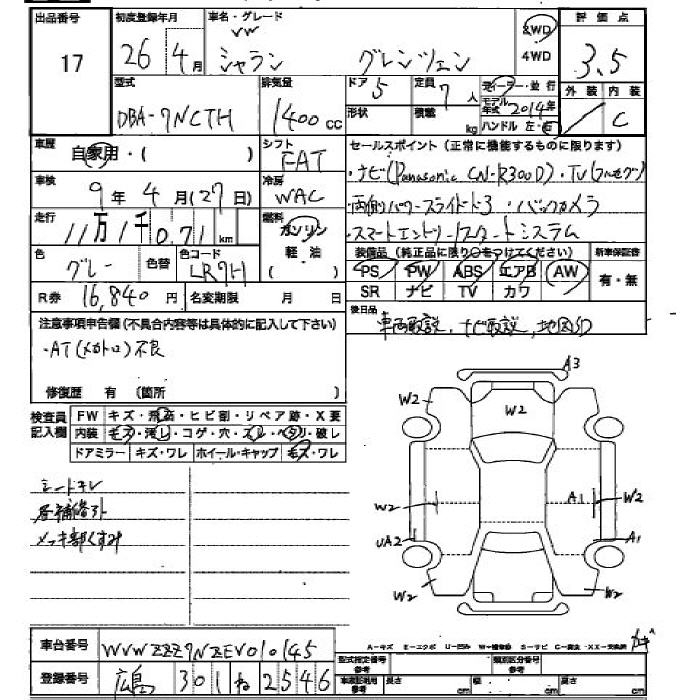 出品番号 初度登録年月 車名・グレード 2WD 評価点
17 26年4月 VW シャラン グレンツェン 4WD 3.5
型式 排気量 ドア 5 定員 7人 ディーラー・並行 外装 内装
DBA-7NCTH 1400cc 形状 積載 kg モデル年式 2014年 C
ハンドル 左・右
車歴 自家用・( ) シフト FAT セールスポイント(正常に機能するものに限ります)
車検 9年4月(27日) 冷房 WAC ・ナビ(Panasonic CN-R300D)・TV(フルセグ)
・両側パワースライドドア・バックカメラ
走行 11万1千071km 燃料 ガソリン 軽・油 ( )
・スマートエントリー&スタートシステム
色 グレー 色替 色コード LR7H
装備品(純正品に限り○をつけてください) 新車保証書
PS PW ABS エアB AW 有・無
SR ナビ TV カワ
R券 16,840円 名変期限 月 日
後日品 車両取説、ナビ取説、地図SD
注意事項申告欄(不具合内容等は具体的に記入して下さい)
・AT(メカトロ)不良
修復歴 有 (箇所 )
検査員記入欄 FW キズ・飛石・ヒビ割・リペア跡・X要
内装 キズ・汚レ・コゲ・穴・スレ・ヘタリ・破レ
ドアミラー キズ・ワレ ホイール・キャップ キズ・ワレ
シートキレ
各補修引
メッキ部くすみ
A3
W2 W2 W2
W2 A1 W2
UA2 A1
W2 W2
車台番号 WVWZZZ7NZEV010145
A-キズ E-エクボ U-凹み W-補修跡 S-サビ C-腐食 XX-交換済
登録番号 広島 301 ね 2546
型式指定番号 参考 類別区分番号 参考
車庫証明用 参考 長さ cm 幅 cm 高さ cm